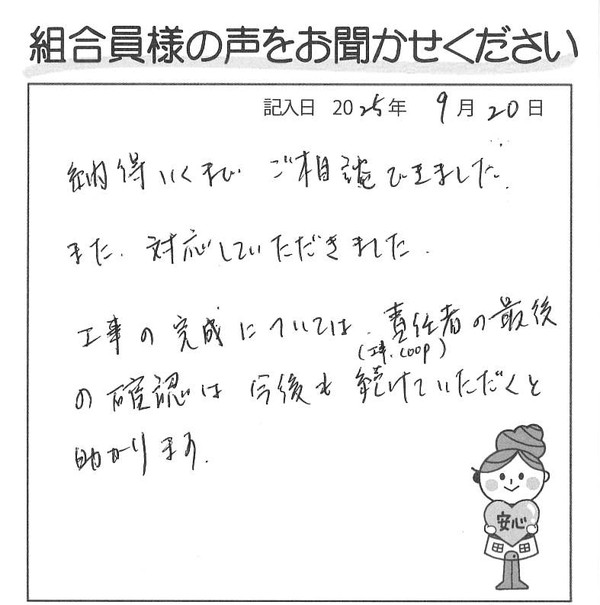 組合員様の声をお聞かせください
記入日 2025年 9月20日
納得いくまで ご相談できました.
また、対応していただきました.
工事の完成については、責任者の最後
(工事.coop)
の確認は 今後も 続けていただくと
助かります.
安心